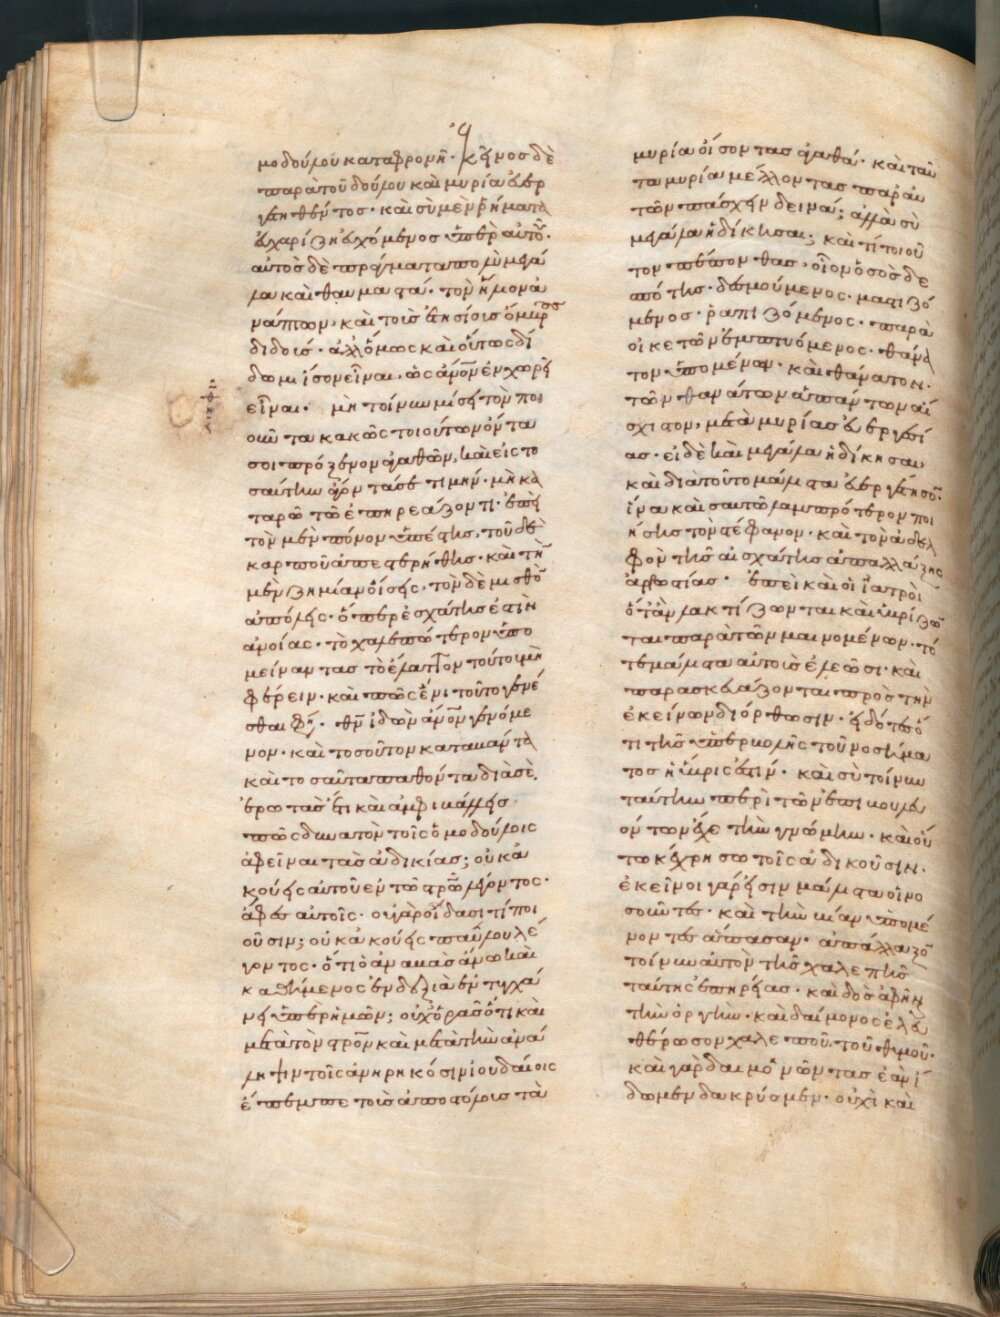 μοδούλου καταφρονῆ· κἀκεῖνος δὲ
παρὰ τοῦ δούλου καὶ μυρία ἐυερ
γετηθέντος· καὶ σὺ μὲν ῥήματα
χαρίζη ἐυχόμενος ὑπὲρ αὐτοῦ·
αὐτὸς δὲ πράγματα πολὺ μεγά
λα καὶ θαυμαστά· τὸν ἥλιον ἀ
νάπτων, καὶ τοὺς ἐτησίους ὄμβρους
διδούς· ἀλλόμως καὶ οὕτως δί
δωμι ἴσον εἶναι, ὡς ἄνον ἐνχωρεῖ
εἶναι· μὴ τοίνυν μίσει τὸν ποι
οῦντα κακῶς τοιούτων ὄντα
σοι πρόξενον ἀγαθῶν, καὶ εἰς το
σαύτην ἄγοντά σε τιμήν· μὴ κα
ταρῶ τῶ ἐπηρεάζοντι· ἐπεὶ
τὸν μὲν πόνον ὑπέστης, τοῦ δὲ
καρποῦ ἀπεστερήθης· καὶ τὴν
μὲν ζημίαν οἴσεις· τὸν δὲ μισθὸν
ἀπολεῖς· ὅπερ ἐσχάτης ἐστὶν
ἀνοίας· τὸ χαλεπώτερον ὑπο
μείναντας τὸ ἔλαττον τούτου μὴ
φέρειν· καὶ πῶς ἔνι τοῦτο γενέ
σθαι φησί· θν ἰδὼν ἄνον γενόμε
νον· καὶ τοσοῦτον καταβάντα
καὶ τοσαῦτα παθόντα διὰ σὲ,
ἐρωτᾶς ἔτι καὶ ἀμφιβάλλεις
πῶς δυνατὸν τοῖς ὁμοδούλοις
ἀφεῖναι τὰς ἀδικίας; οὐκ ἀ
κούεις αὐτοῦ ἐν τῶ στρῶ λέγοντος·
ἄφες αὐτοῖς· οὐ γὰρ οἴδασι τί ποι
οῦσιν; οὐκ ἀκούεις παύλου λέ
γοντος· ὅτι ὁ ἀναβὰς ἄνω καὶ
καθήμενος ἐν δεξιᾶ ἐντυγχά
νει ὑπὲρ ἡμῶν; οὐχ ὁρᾶς ὅτι καὶ
μετὰ τὸν στρὸν καὶ μετὰ τὴν ἀνά
ληψιν τοῖς ἀνηρηκόσιν ἰουδαίοις
ἔπεμπε τοὺς ἀποστόλους τὰ
μυρία οἴσοντας ἀγαθά· καὶ ταῦ
τα μυρία μέλλοντας παρ' αὐ
τῶν πάσχειν δεινά; ἀλλὰ σὺ
μεγάλα ἠδίκησαι; καὶ τί τοιοῦ
τον πέπονθας, οἷον ὁ σὸς δε
σπότης· δεσμούμενος· μαστιζό
μενος· ῥαπιζόμενος· παρὰ
οἰκετῶν ἐμπτυόμενος· θάνα
τον ὑπομένων· καὶ θάνατον
τῶν θανάτων ἁπάντων αἴ
σχιστον, μετὰ μυρίας ἐυεργεσί
ας· εἰ δὲ καὶ μεγάλα ἠδίκησαι,
καὶ διὰ τοῦτο μάλιστα ἐυεργέτησον·
ἵνα καὶ σαυτῶ λαμπρότερον ποι
ήσης τὸν στέφανον· καὶ τὸν ἀδελ
φὸν τῆς αἰσχάτης ἀπαλλάξης
ἀρρωστίας· ἐπεὶ καὶ οἱ ἰατροὶ
ὅταν λακτίζωνται καὶ ὑβρίζων
ται παρὰ τῶν μαινομένων· τό
τε μάλιστα αὐτοὺς ἐλεῶσι· καὶ
παρασκευάζονται πρὸς τὴν
ἐκείνων διόρθωσιν· εἰδότες ὅ
τι τῆς ὑπερβολῆς τοῦ νοσήμα
τος ἡ ὕβρις ἐστίν· καὶ σὺ τοίνυν
ταύτην περὶ τῶν ἐπιβουλευ
όντων ἔχε τὴν γνώμην· καὶ οὕ
τω κέχρησο τοῖς ἀδικοῦσιν·
ἐκεῖνοι γάρ εἰσιν μάλιστα οἱ νο
σοῦντες· καὶ τὴν βίαν ὑπομέ
νοντες ἅπασαν· ἀπάλλαξον
τοίνυν αὐτὸν τῆς χαλεπῆς
ταύτης ἐπηρείας· καὶ δὸς ἀφεῖναι
τὴν ὀργήν· καὶ δαίμονος ἐλευ
θέρωσον χαλεποῦ· τοῦ θυμοῦ·
καὶ γὰρ δαιμονῶντας ἐὰν ἴ
δωμεν δακρύομεν· οὐχὶ καὶ